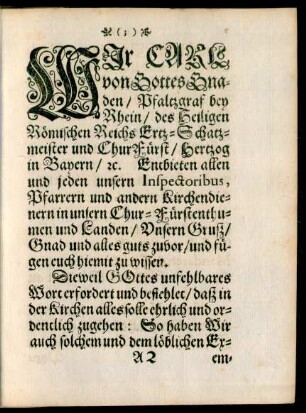 (3)
WIr CARL
von Gottes Gna-
den / Pfaltzgraf bey
Rhein / des Heiligen
Römischen Reichs Ertz-Schatz-
meister und ChurFürst / Hertzog
in Bayern / ꝛc. Entbieten allen
und jeden unsern Inspectoribus,
Pfarrern und andern Kirchendie-
nern in unsern Chur-Fürstenthu-
men und Landen / Unsern Gruß /
Gnad und alles guts zuvor / und fü-
gen euch hiemit zu wissen.
Dieweil GOttes unfehlbares
Wort erfordert und befiehlet / daß in
der Kirchen alles solle ehrlich und or-
dentlich zugehen: So haben Wir
auch solchem und dem löblichen Ex-
A 2 em-